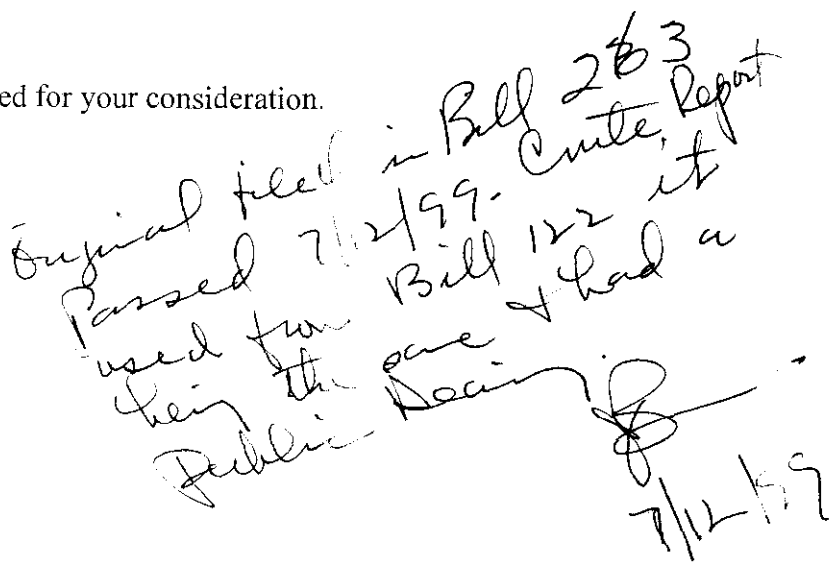 ed for your consideration.
Original filed in Bill 263
Passed 7/12/99. Cmte. Report
used from Bill 122 it
being the same & had a
Public Hearing.
7/12/99